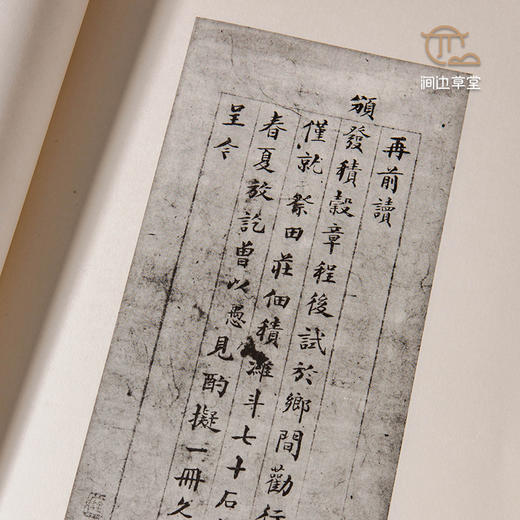 涧边草堂
再前讀
頒發積穀章程後試於鄉間勸行
僅就祭田莊佃積雜斗七十石
春夏放訖曾以愚見酌擬一冊久
呈今